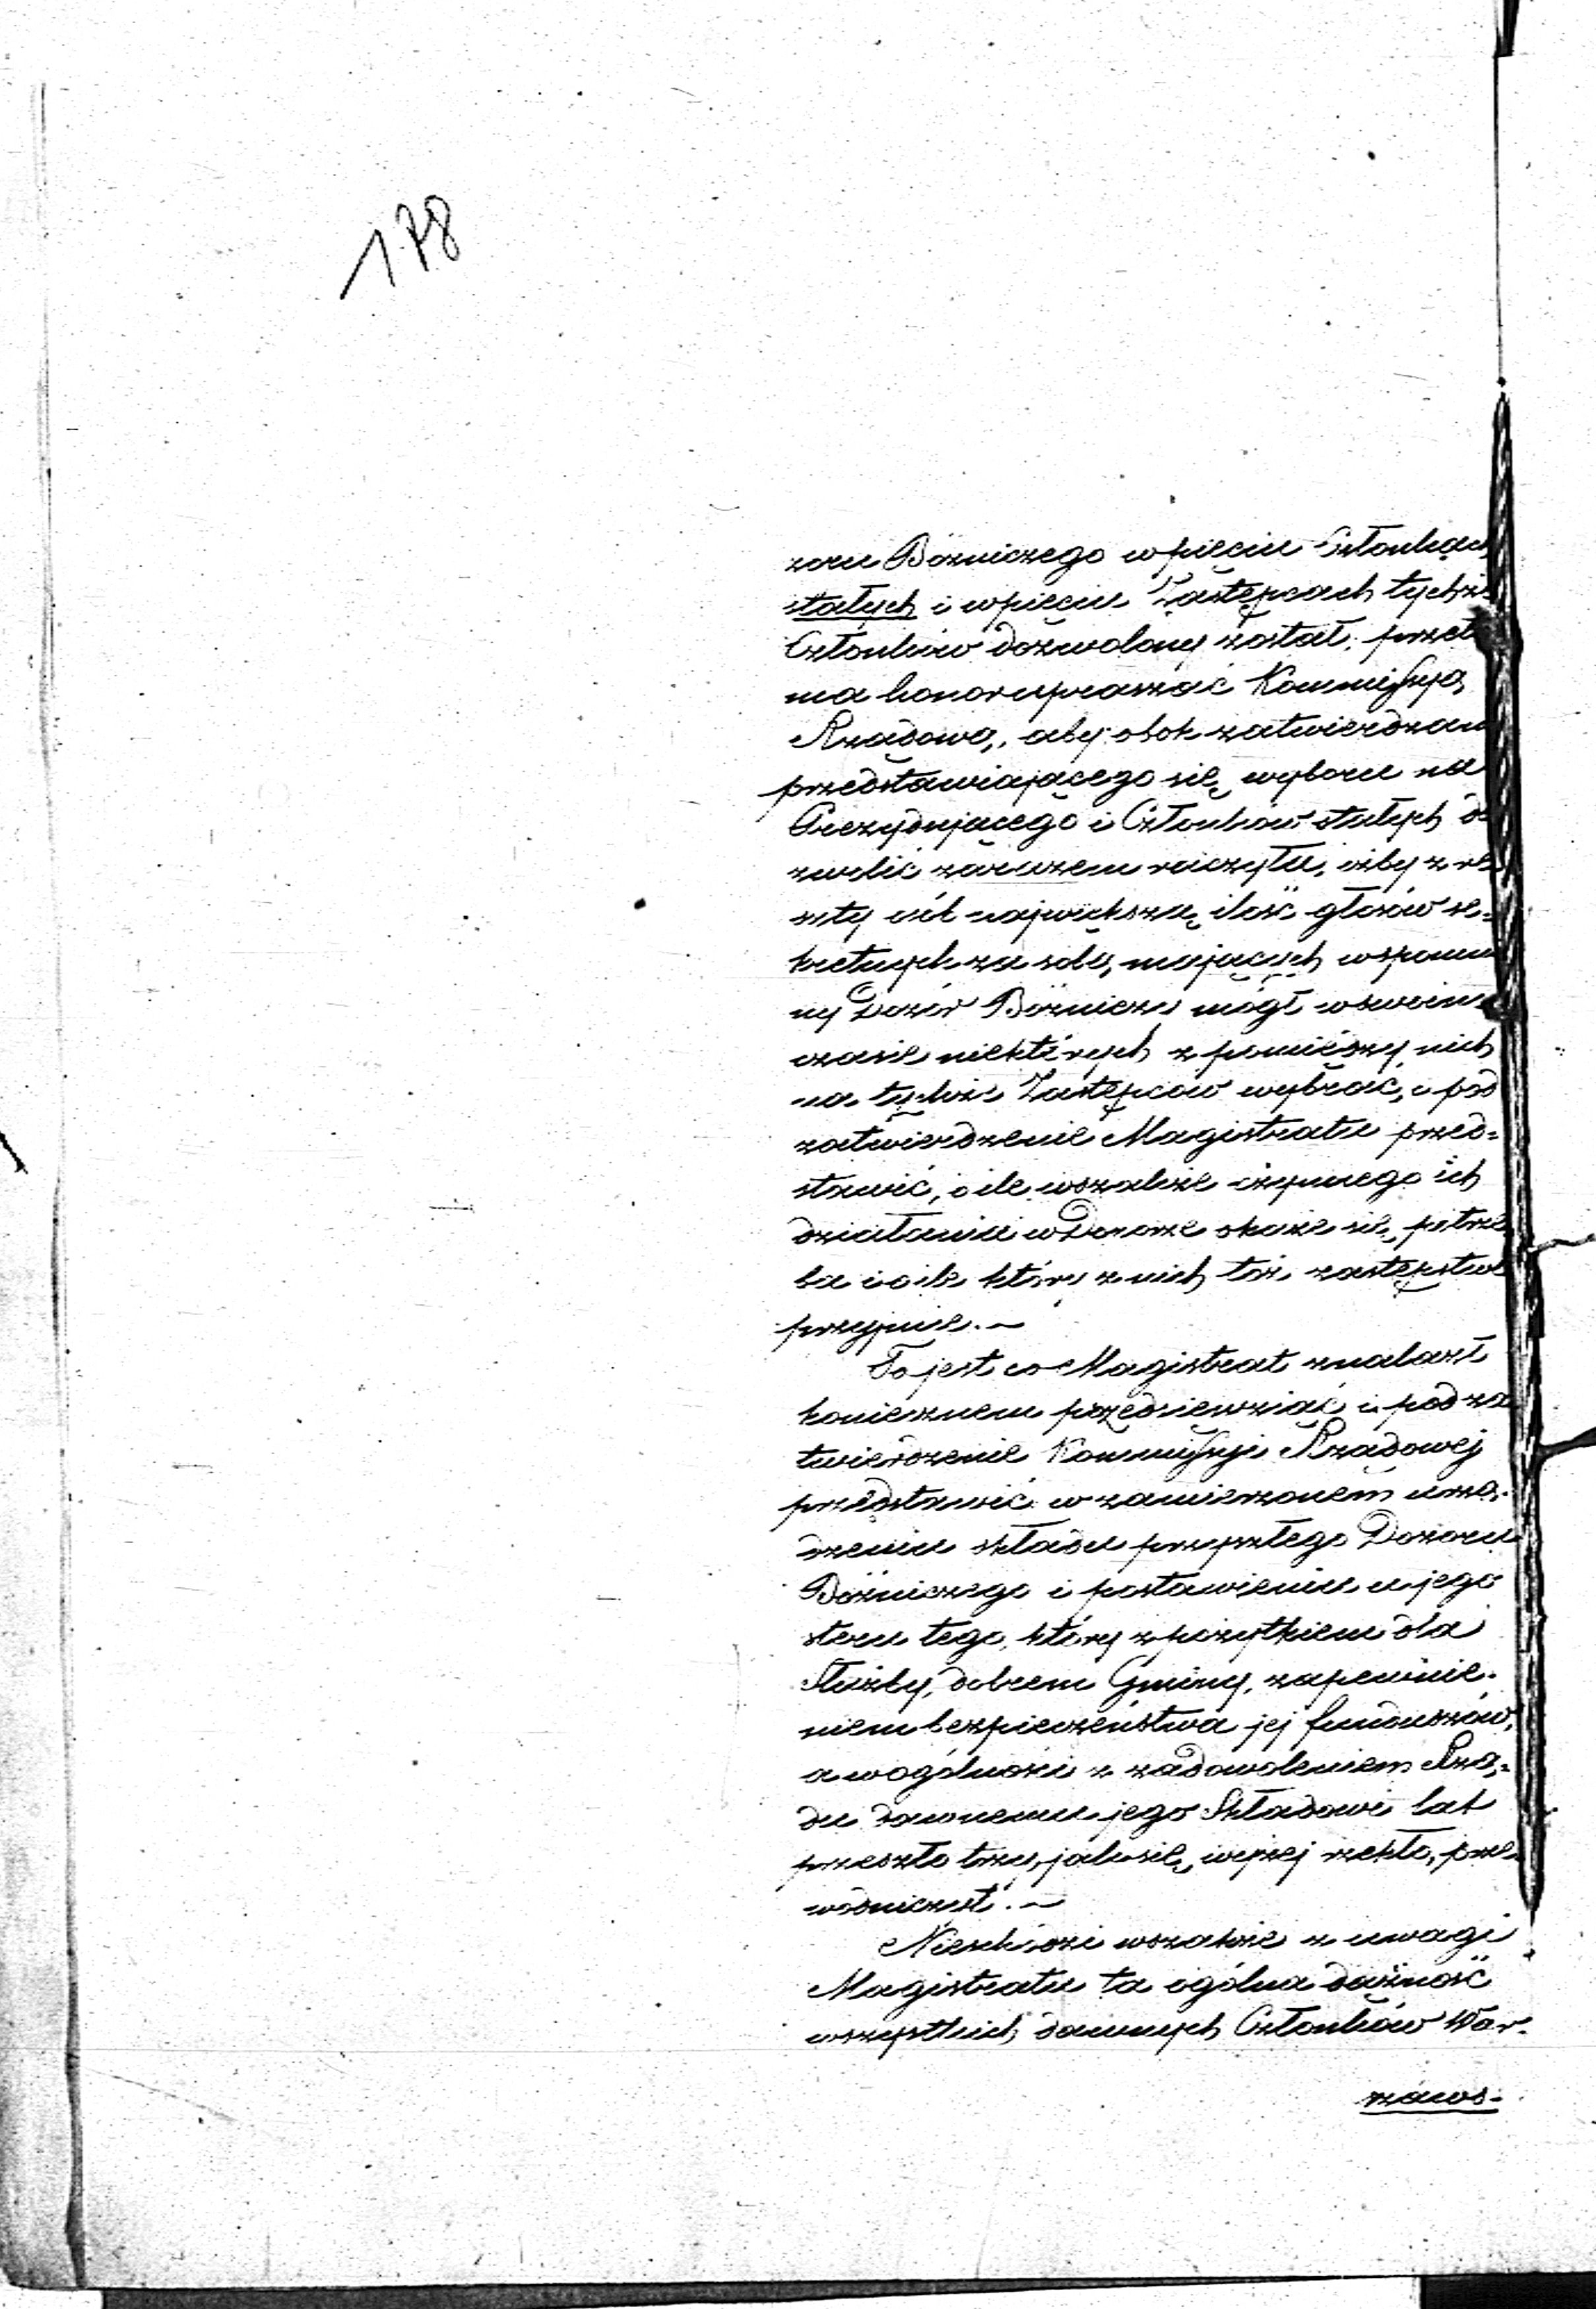 178
zoru Bożniczego w pięciu Członkach
stałych i w pięciu Zastępcach tychże
Członków dozwolony został, przeto
ma honor upraszać Kommissyą
Rządową, aby obok zatwierdzan
przedstawiającego się wyboru na
Prezydującego i Członków stałych do
zwolić zarazem raczyła, iżby z re
szty osób największą ilość głosów se-
kretnych za sobą mających wspomn
ny Dozór Bożniczy mógł w swoim
czasie niektórych z pomiędzy nich
na tychże Zastępców wybrać, i pod
zatwierdzenie Magistratu przed-
stawić, o ile wszakże czynnego ich
działania w Dozorze okaże się potrze
ba i o ile który z nich toż zastępstwo
przyjmie. —
To jest co Magistrat znalazł
koniecznem przedsięwziąć i pod za
twierdzenie Kommissyi Rządowej
przedstawić w zamierzonem urzą-
dzeniu składu przyszłego Dozoru
Bożniczego i postawieniu u jego
steru tego, który z pożytkiem dla
Służby, dobrem Gminy, zapewnie-
niem bezpieczeństwa jej funduszów,
a wogólności z zadowoleniem Rzą-
du dawnemu jego Składowi lat
przeszło trzy, jak się wyżej rzekło, prze-
wodniczył. —
Nieschodzi wszakże z uwagi
Magistratu ta ogólna dążność
wszystkich dawnych Członków War-
szaws-